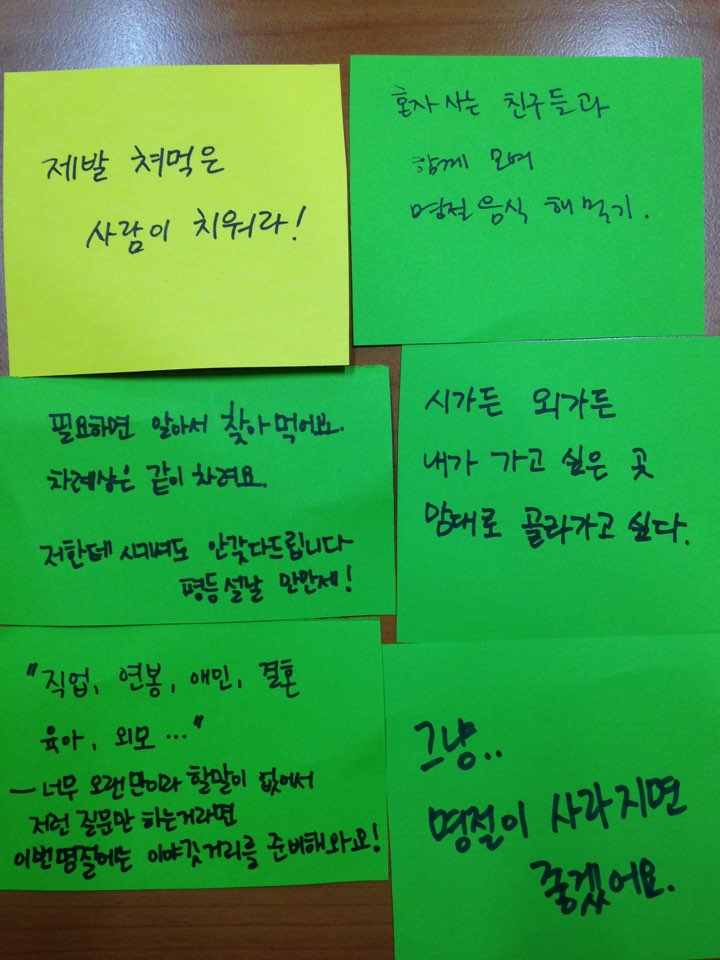 제발 쳐먹은
사람이 치워라!
혼자 사는 친구들과
함께 모여
명절음식 해먹기.
필요하면 알아서 찾아먹어요.
차례상은 같이 차려요.
저한테 시켜도 안갖다드립니다
평등설날 만만세!
시가든 외가든
내가 가고 싶은 곳
맘대로 골라가고 싶다.
"직업, 연봉, 애인, 결혼
육아, 외모..."
— 너무 오랜만이라 할말이 없어서
저런 질문만 하는거라면
이번명절에는 이야깃거리를 준비해와요!
그냥..
명절이 사라지면
좋겠어요.